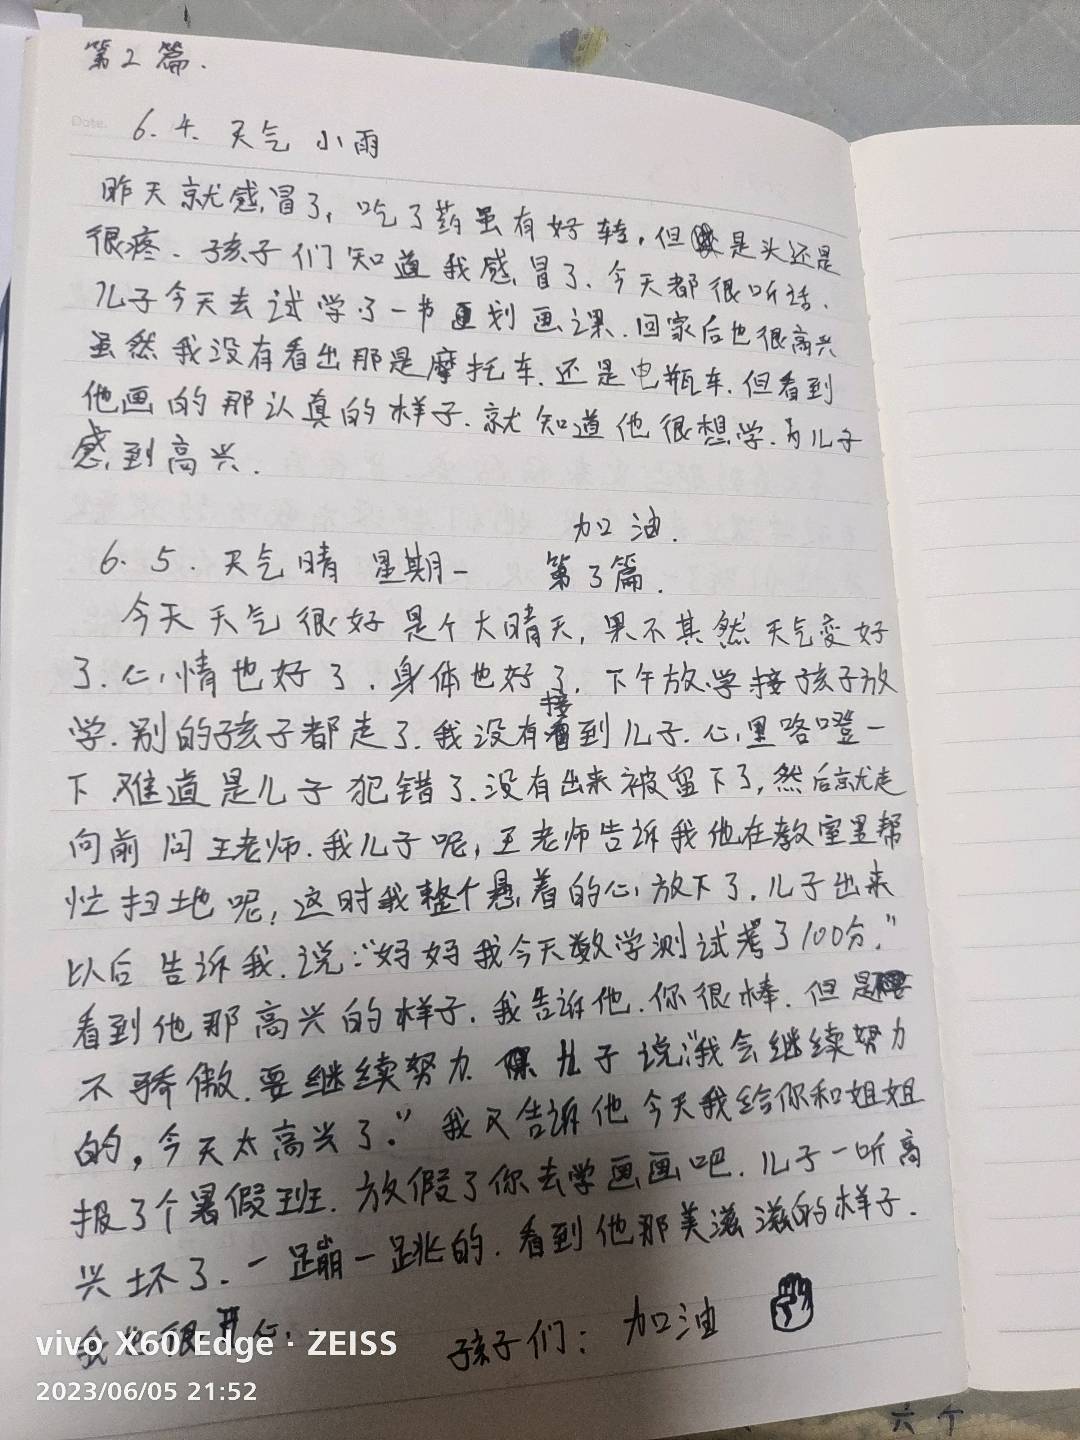 第2篇.
Date.
6.4. 天气 小雨
昨天就感冒了,吃了药虽有好转,但是头还是
很疼.孩子们知道我感冒了.今天都很听话.
儿子今天去试学了一节划画课.回家后也很高兴
虽然我没有看出那是摩托车.还是电瓶车.但看到
他画的那认真的样子.就知道他很想学.为儿子
感到高兴.
加油.
6.5.天气晴 星期一 第3篇.
今天天气很好是个大晴天,果不其然天气变好
了.心情也好了.身体也好了.下午放学接孩子放
学.别的孩子都走了.我没有接到儿子.心里咯噔一
下 难道是儿子犯错了.没有出来被留下了,然后就走
向前问王老师.我儿子呢,王老师告诉我他在教室里帮
忙扫地呢,这时我整个悬着的心放下了.儿子出来
以后告诉我.说:“妈妈我今天数学测试考了100分.”
看到他那高兴的样子.我告诉他.你很棒.但是
不骄傲.要继续努力 儿子说:“我会继续努力
的,今天太高兴了.”我又告诉他今天我给你和姐姐
报了个暑假班.放假了你去学画画吧.儿子一听高
兴坏了.一蹦一跳的.看到他那美滋滋的样子.
我也很开心.
孩子们:加油
vivo X60 Edge · ZEISS
2023/06/05 21:52
六个